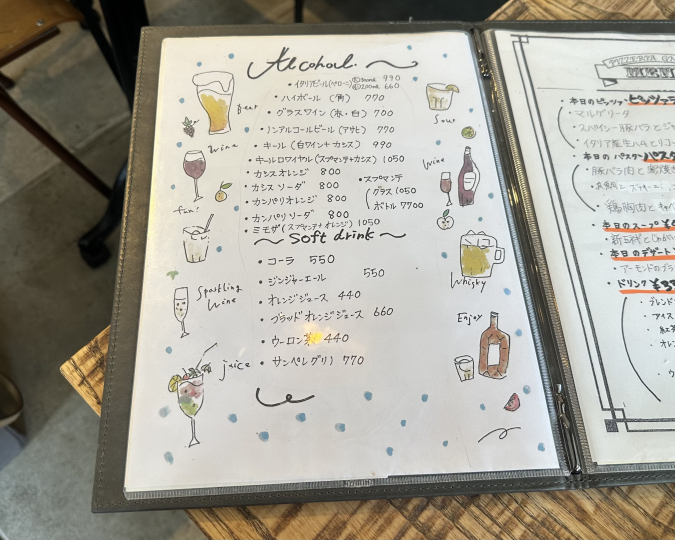 Alcohol.
・イタリアビール(ペローニ) 330ml 990
200ml 660
・ハイボール (角) 770
・グラスワイン (赤・白) 700
・ノンアルコールビール (アサヒ) 770
・キール (白ワイン+カシス) 990
・キールロワイヤル (スプマンテ+カシス) 1050
・カシスオレンジ 800
・カシスソーダ 800
・カンパリオレンジ 800
・カンパリソーダ 800
・ミモザ (スプマンテ+オレンジ) 1050
・スプマンテ
グラス 1050
ボトル 7700
Soft drink
・コーラ 550
・ジンジャーエール 550
・オレンジジュース 440
・ブラッドオレンジジュース 660
・ウーロン茶 440
・サンペレグリノ 770
Beer
Wine
fun!
Sparkling
Wine
juice
Sour
Wine
Whisky
Enjoy
MENU
本日のピッツァ ピッツァ
・マルゲリータ
・スパイシー豚バラと
・イタリア産生ハムとリコ
本日のパスタ パスタ
・豚バラ肉と
・鶏胸肉とキャベ
本日のスープ
本日のデザート
・アーモンドの
・ドリンク
・ブレンド
・アイス
・紅茶
・オレン
・ウ